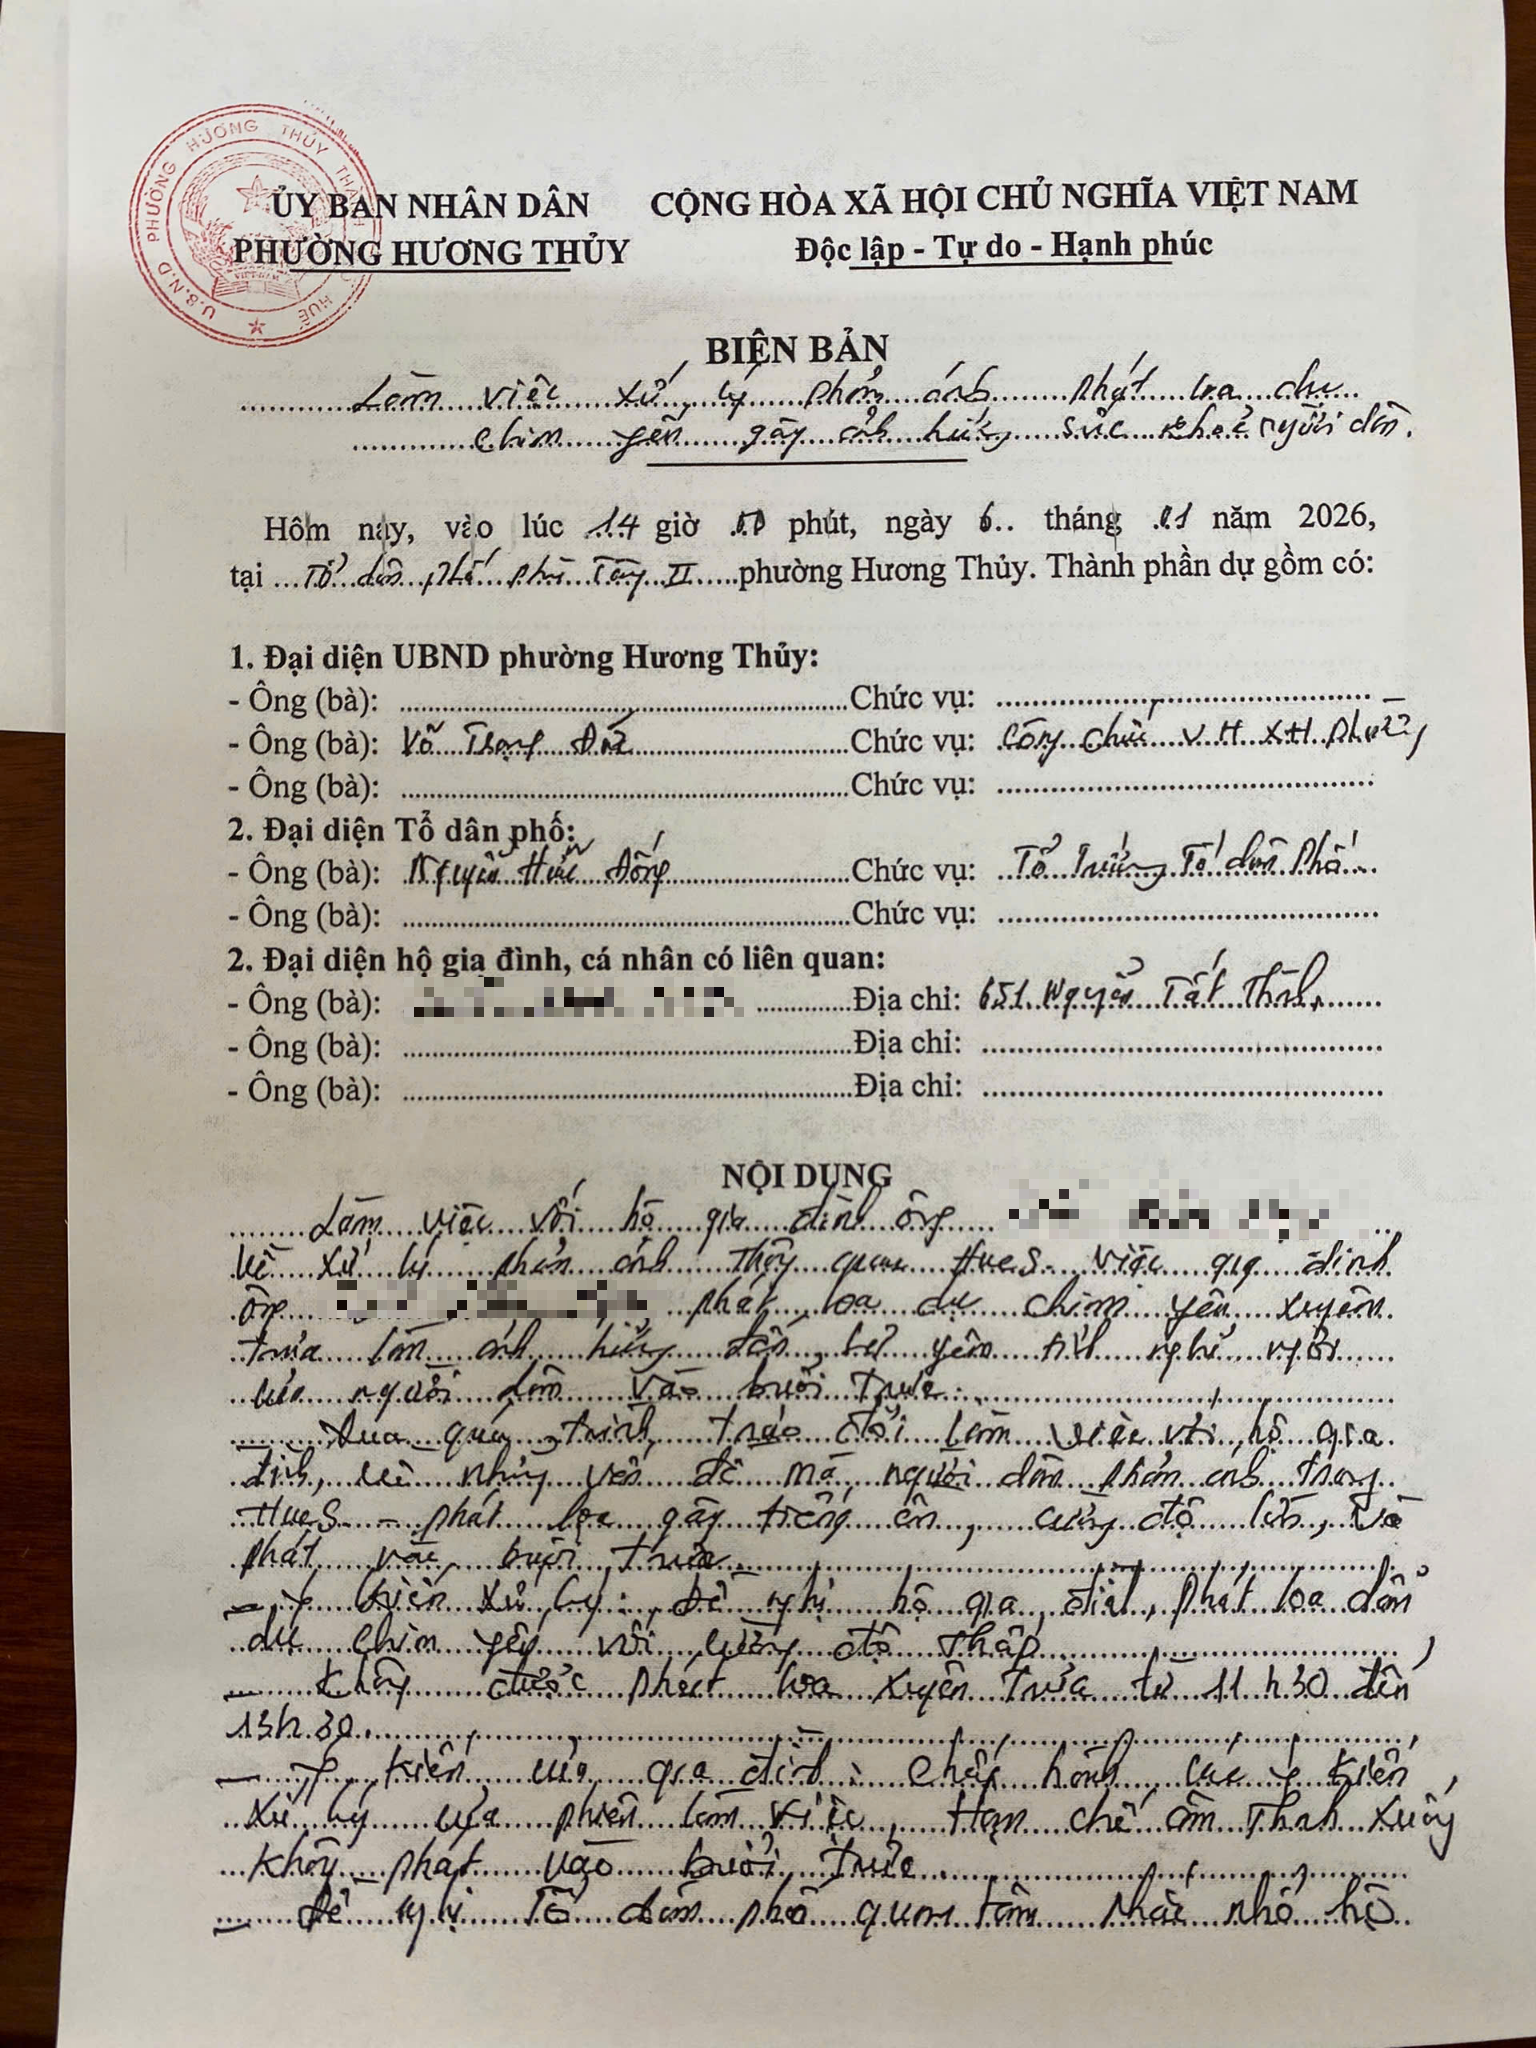 U.B.N.D PHƯỜNG HƯƠNG THỦY THÀNH HUẾ
ỦY BAN NHÂN DÂN
PHƯỜNG HƯƠNG THỦY
CỘNG HÒA XÃ HỘI CHỦ NGHĨA VIỆT NAM
Độc lập - Tự do - Hạnh phúc
BIÊN BẢN
Làm việc xử lý phản ánh phát loa dụ
chim yến gây ảnh hưởng sức khoẻ người dân.
Hôm nay, vào lúc 14 giờ phút, ngày 6 tháng 01 năm 2026,
tại Tổ dân phố Phù Tây II phường Hương Thủy. Thành phần dự gồm có:
1. Đại diện UBND phường Hương Thủy:
- Ông (bà): Chức vụ:
- Ông (bà): Võ Trọng Chức vụ: Công chức VH XH phường
- Ông (bà): Chức vụ:
2. Đại diện Tổ dân phố:
- Ông (bà): Nguyễn Hữu Đống Chức vụ: Tổ Trưởng Tổ dân phố
- Ông (bà): Chức vụ:
2. Đại diện hộ gia đình, cá nhân có liên quan:
- Ông (bà): Địa chỉ: 651 Nguyễn Tất Thành
- Ông (bà): Địa chỉ:
- Ông (bà): Địa chỉ:
NỘI DUNG
Làm việc với hộ gia đình ông
Về xử lý phản ánh thông qua HueS việc gia đình
ông phát loa dụ chim yến xuyên
trưa làm ảnh hưởng đến sự yên tĩnh nghỉ ngơi
của người dân vào buổi trưa.
Qua quá trình trao đổi làm việc với hộ gia
đình, về những vấn đề mà người dân phản ánh trong
HueS - phát loa gây tiếng ồn, cường độ lớn, và
phát vào buổi trưa
- Ý kiến xử lý: Đề nghị hộ gia đình phát loa dẫn
dụ chim yến với cường độ thấp
- Không được phát loa xuyên trưa từ 11h30 đến
13h30
- Ý kiến của gia đình: Chấp hành các ý kiến
xử lý của phiên làm việc, Hạn chế âm thanh xuống
không phát vào buổi trưa
- Đề nghị Tổ dân phố quan tâm nhắc nhở hộ